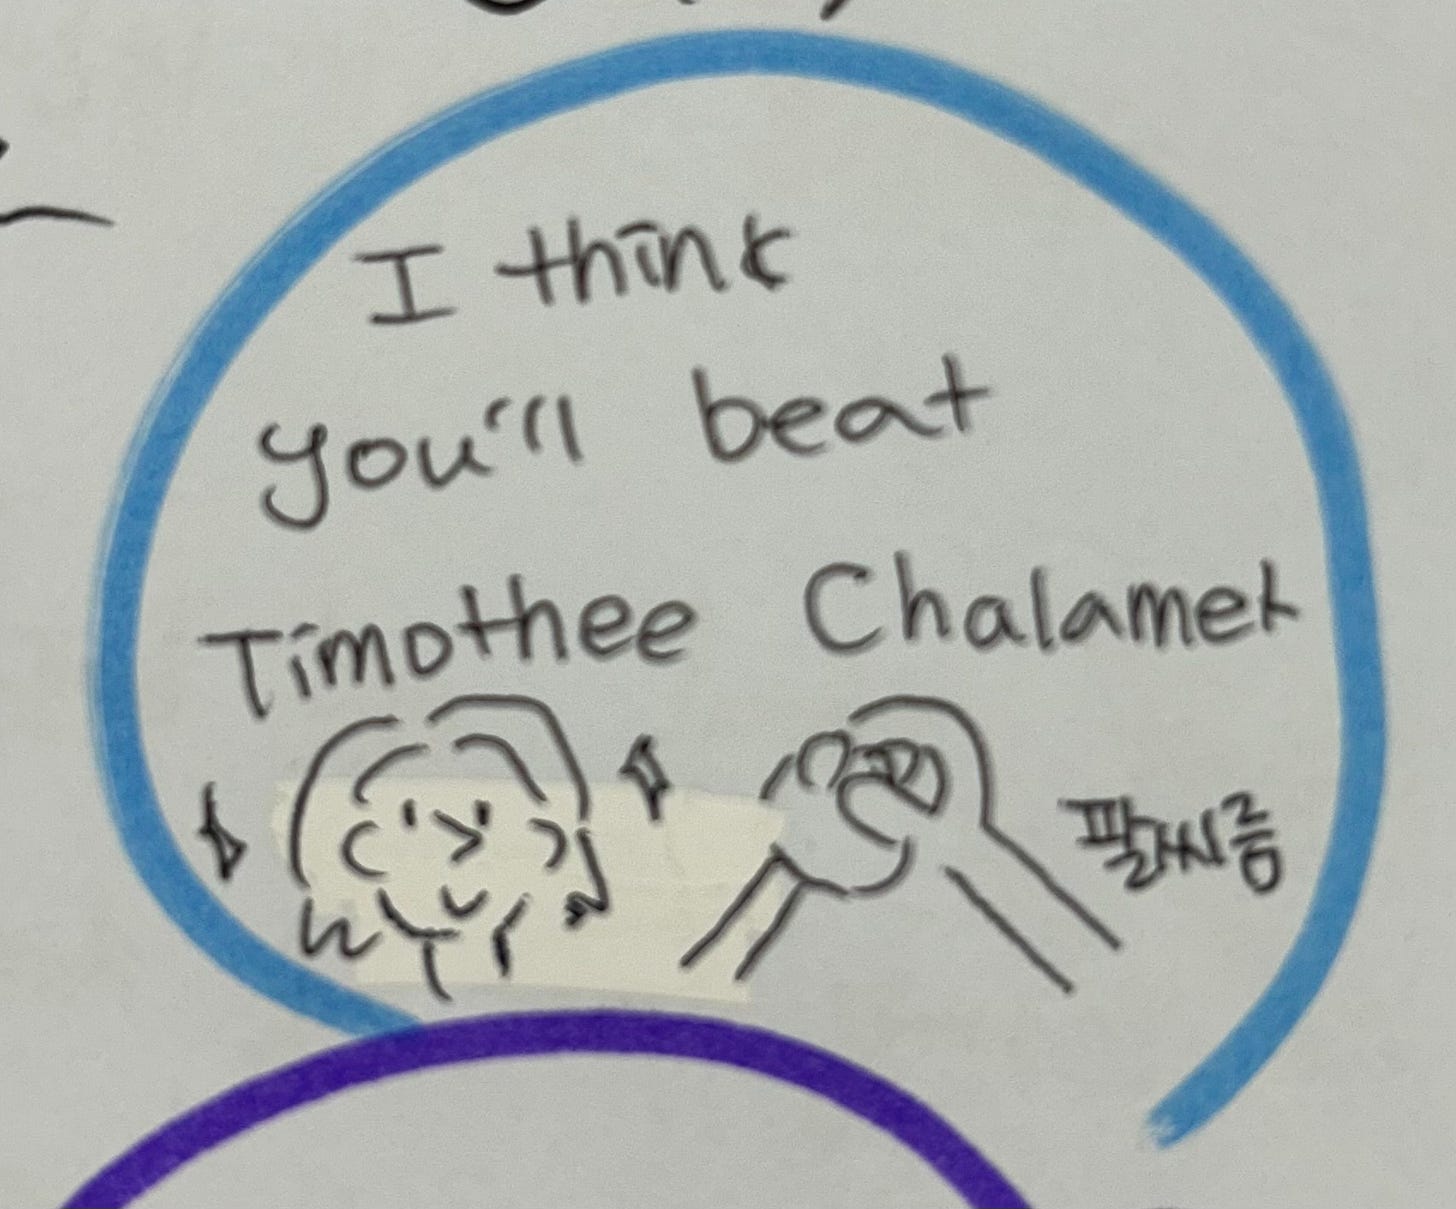 I think
you'll beat
Timothee Chalamet
팔씨름